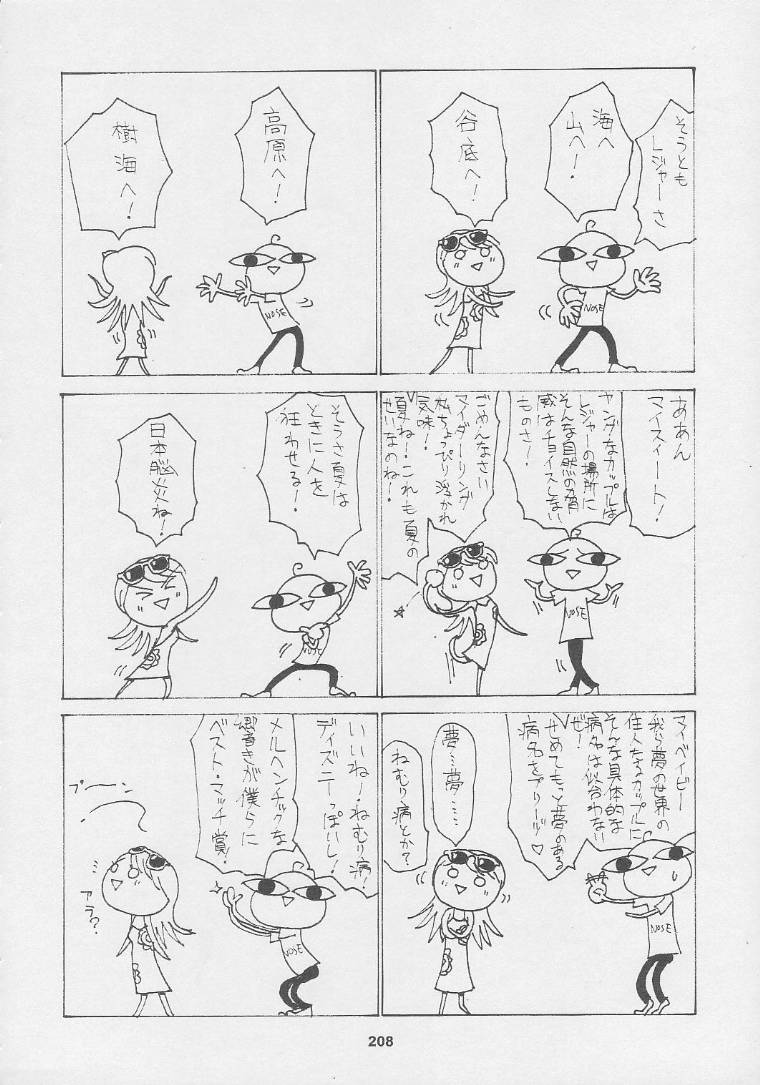 そうとも
レジャーさ
海へ
山へ！
NOSE
谷底へ！
高原へ！
NOSE
樹海へ！
ああん
マイスィート！
ヤングなカップルは
レジャーの場所に
そんな自然の脅
威はチョイスしない
ものさ！
NOSE
ごめんなさい
マイダーリング
私ちょっぴり浮かれ
気味！
夏ね！これも夏の
せいなのね！
そうさ夏は
ときに人を
狂わせる！
NOSE
日本脳炎ね！
マイベイビー
我ら夢の世界の
住人たるカップルに
そんな具体的な
病名は似合わない
ぜ！
せめてもっと夢のある
病名をプリーヅ♡
NOSE
夢…夢……
ねむり病とか？
いいねー！ねむり病！
ディズニーっぽいし！
メルヘンチックな
響きが僕らに
ベスト・マッチ賞！
NOSE
プーーン
アラ？
208